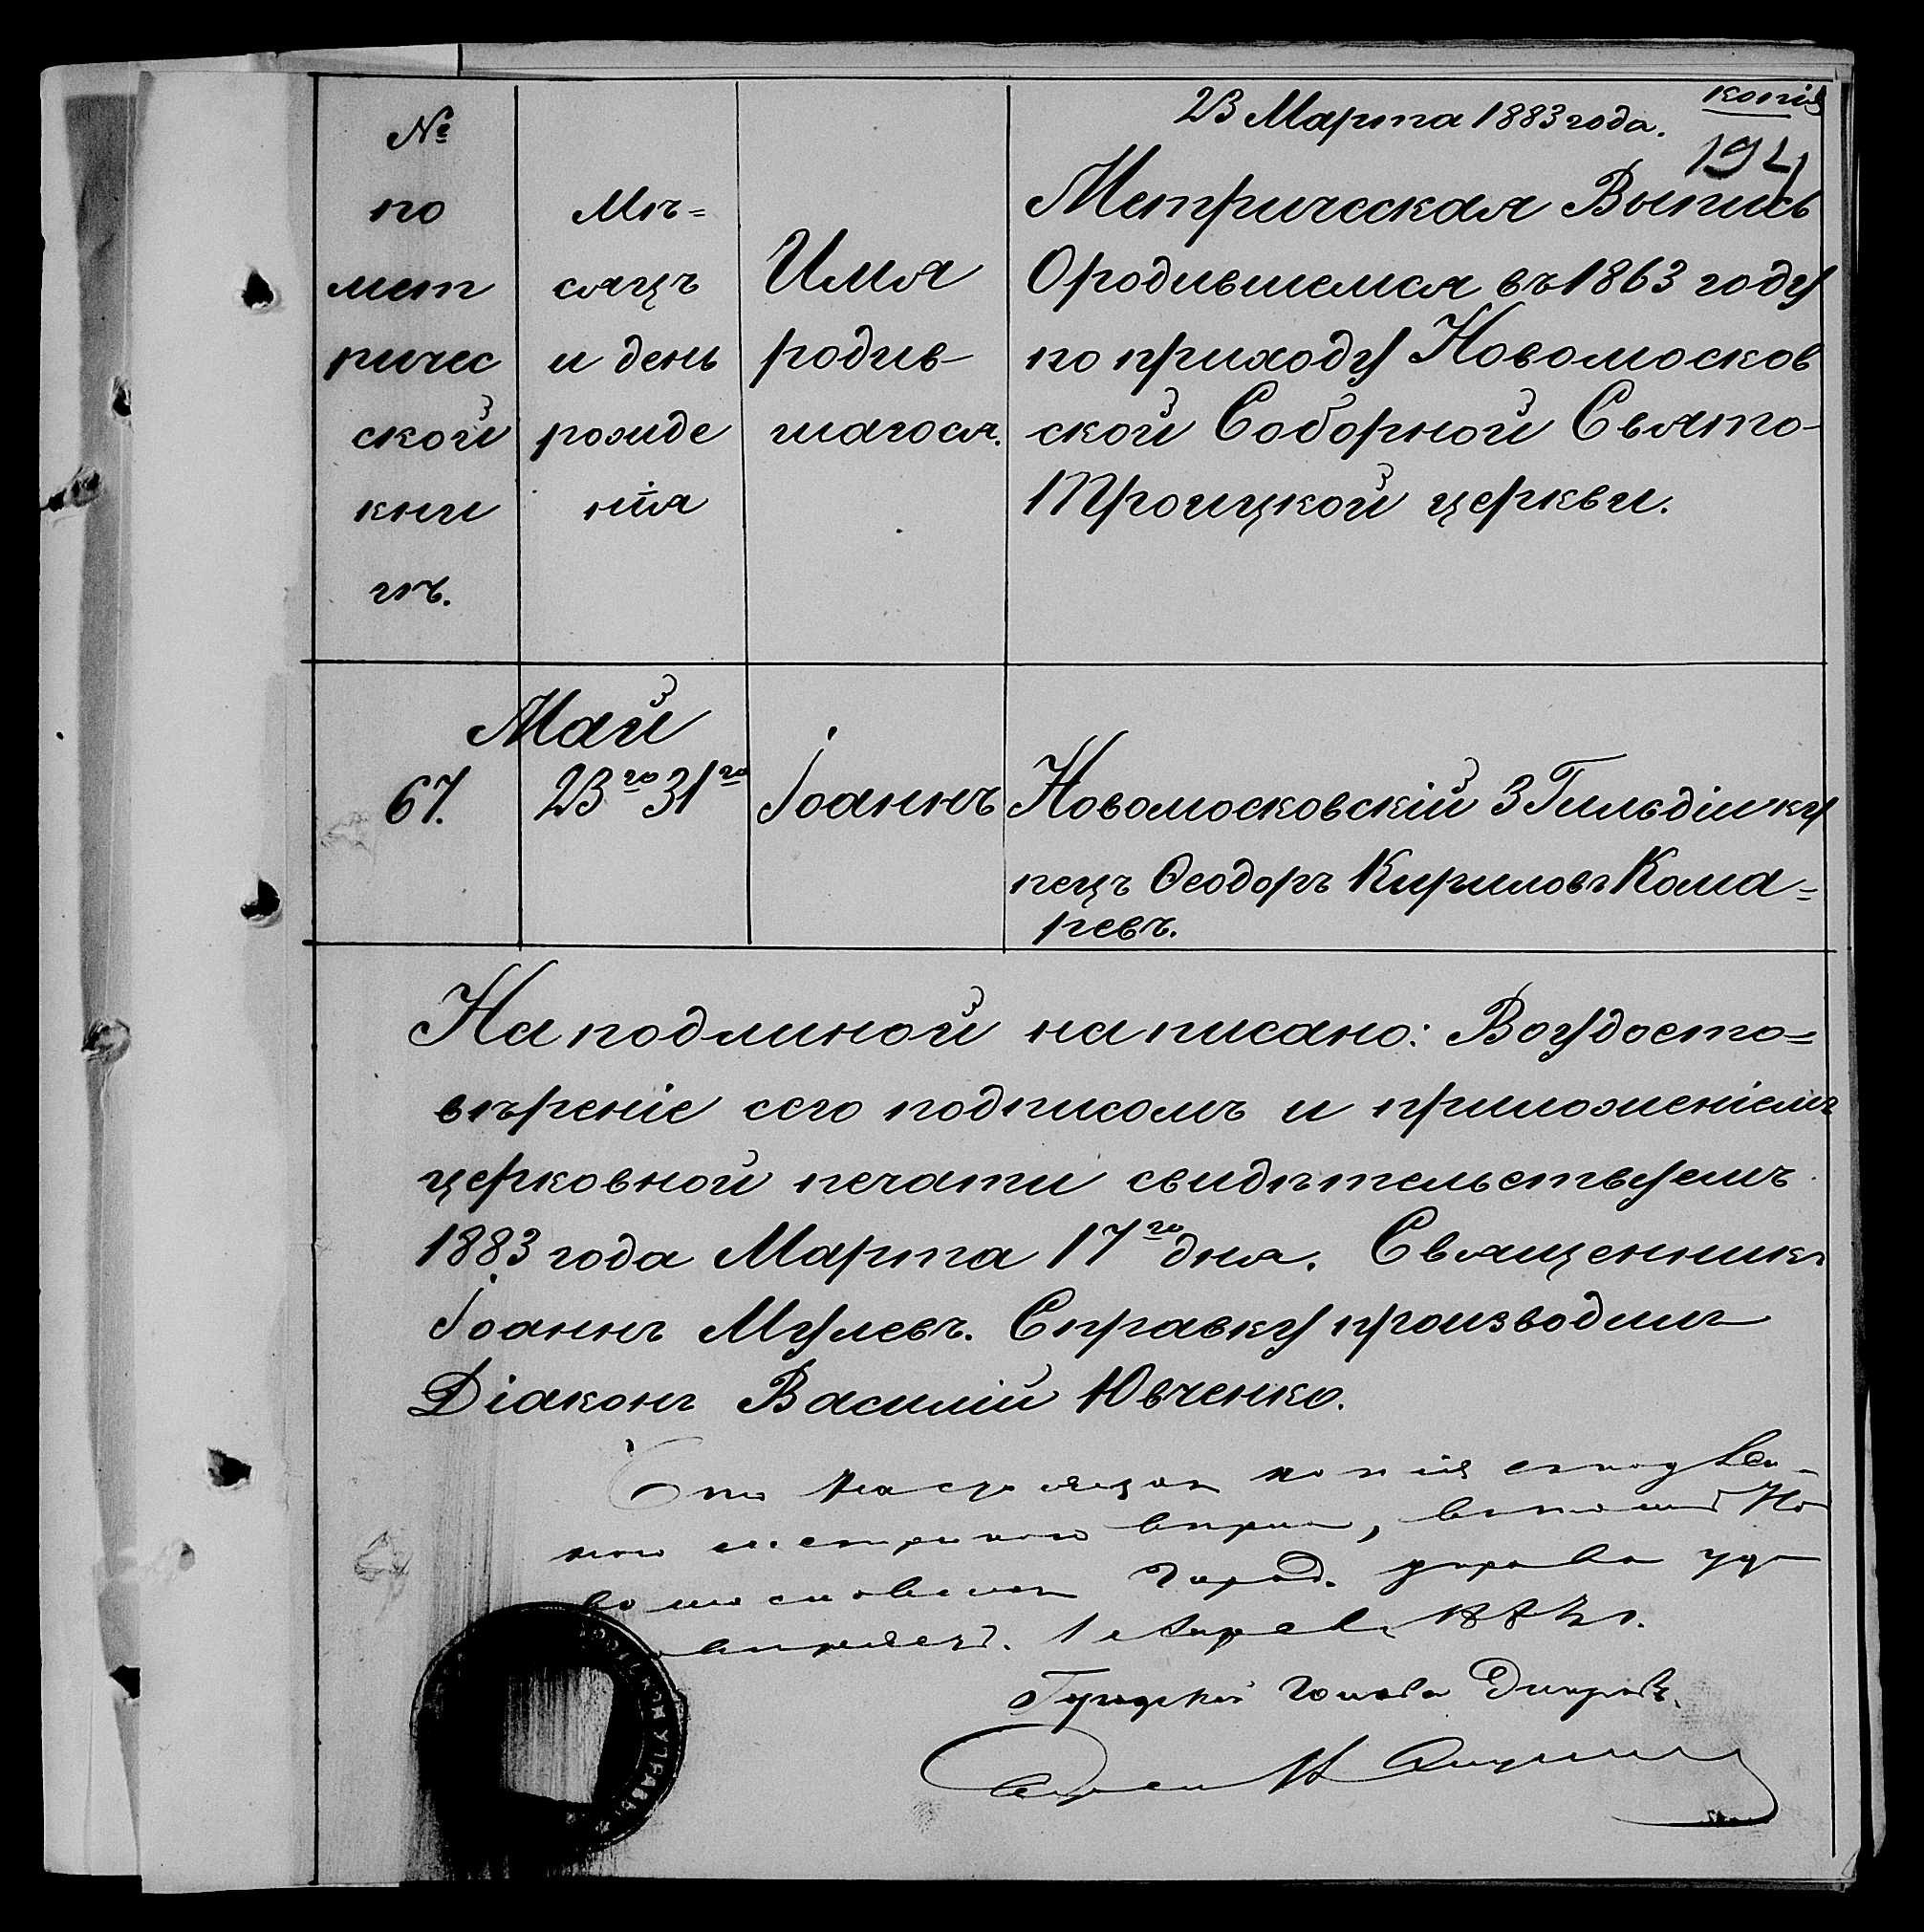 23 Марта 1883 года.
копія
194
№
по
мет
ричес
ской
кни
гѣ.
Мѣ=
сяцъ
и день
рожде
нія
Имя
родив-
шагося.
Метрическая Выпись
О родившемся въ 1863 году
по приходу Новомосков
ской Соборной Свято-
Троицкой церкви.
Май
67.
23го 31го
Іоаннъ
Новомосковскій 3 Гильдіи ку
пецъ Ѳеодоръ Кириловъ Кома=
ревъ.
На подлиной написано: Во удосто=
вѣреніе сего подписомъ и приложеніемъ
церковной печати свидѣтельствуемъ
1883 года Марта 17го дня. Священникъ
Іоаннъ Мулевъ. Справку производилъ
Діаконъ Василій Ювченко.
Что настоящая копія
Но
вомосковская Город. управа удо
1
Городской голова
УПРАВЫ